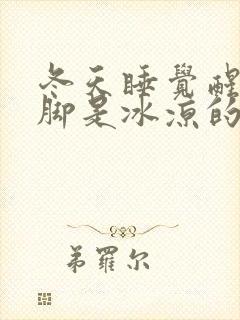 冬天睡覺醒
腳是冰涼的
弟羅尔